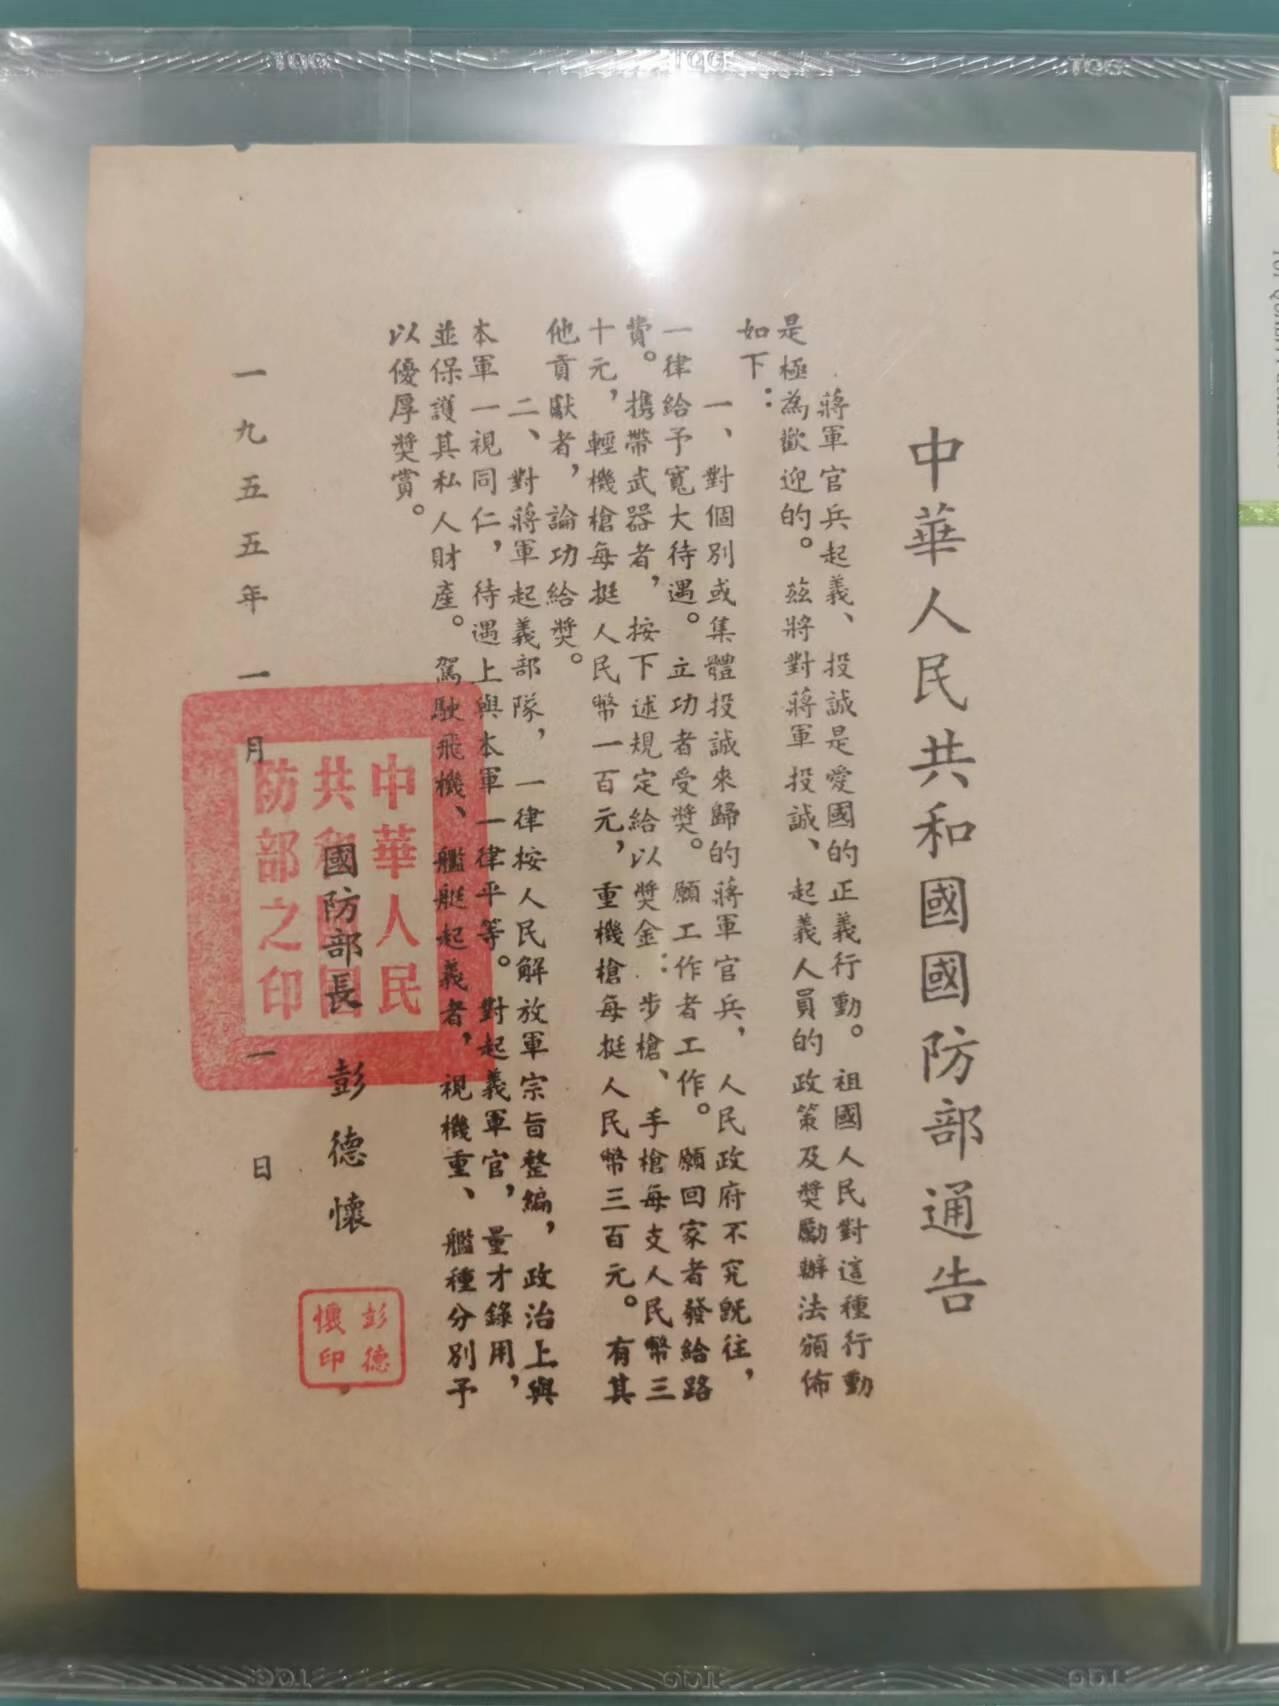 中華人民共和國國防部通告
蔣軍官兵起義、投誠是愛國的正義行動。祖國人民對這種行動
是極為歡迎的。茲將對蔣軍投誠、起義人員的政策及獎勵辦法頒佈
如下：
一、對個別或集體投誠來歸的蔣軍官兵，人民政府不究既往，
一律給予寬大待遇。立功者受獎。願工作者工作。願回家者發給路
費。携帶武器者，按下述規定給以獎金：步槍、手槍每支人民幣三
十元，輕機槍每挺人民幣一百元，重機槍每挺人民幣三百元。有其
他貢獻者，論功給獎。
二、對蔣軍起義部隊，一律按人民解放軍宗旨整編，政治上與
本軍一視同仁，待遇上與本軍一律平等。對起義軍官，量才錄用，
並保護其私人財產。駕駛飛機、艦艇起義者，視機重、艦種分別予
以優厚獎賞。
國防部長 彭德懷
彭德
懷印
一九五五年一月一日
中華人民
共和國國
防部之印
TQG
TQG
TQG
TQG
TQG
TQG